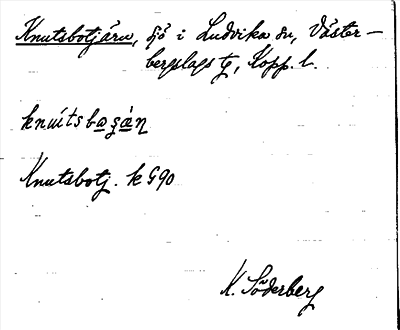 Knutsbotjärn, sjö i Ludvika sn, Väster-
bergslags tg, Kopp. l.
Knutsbotj. k G90
K. Söderberg